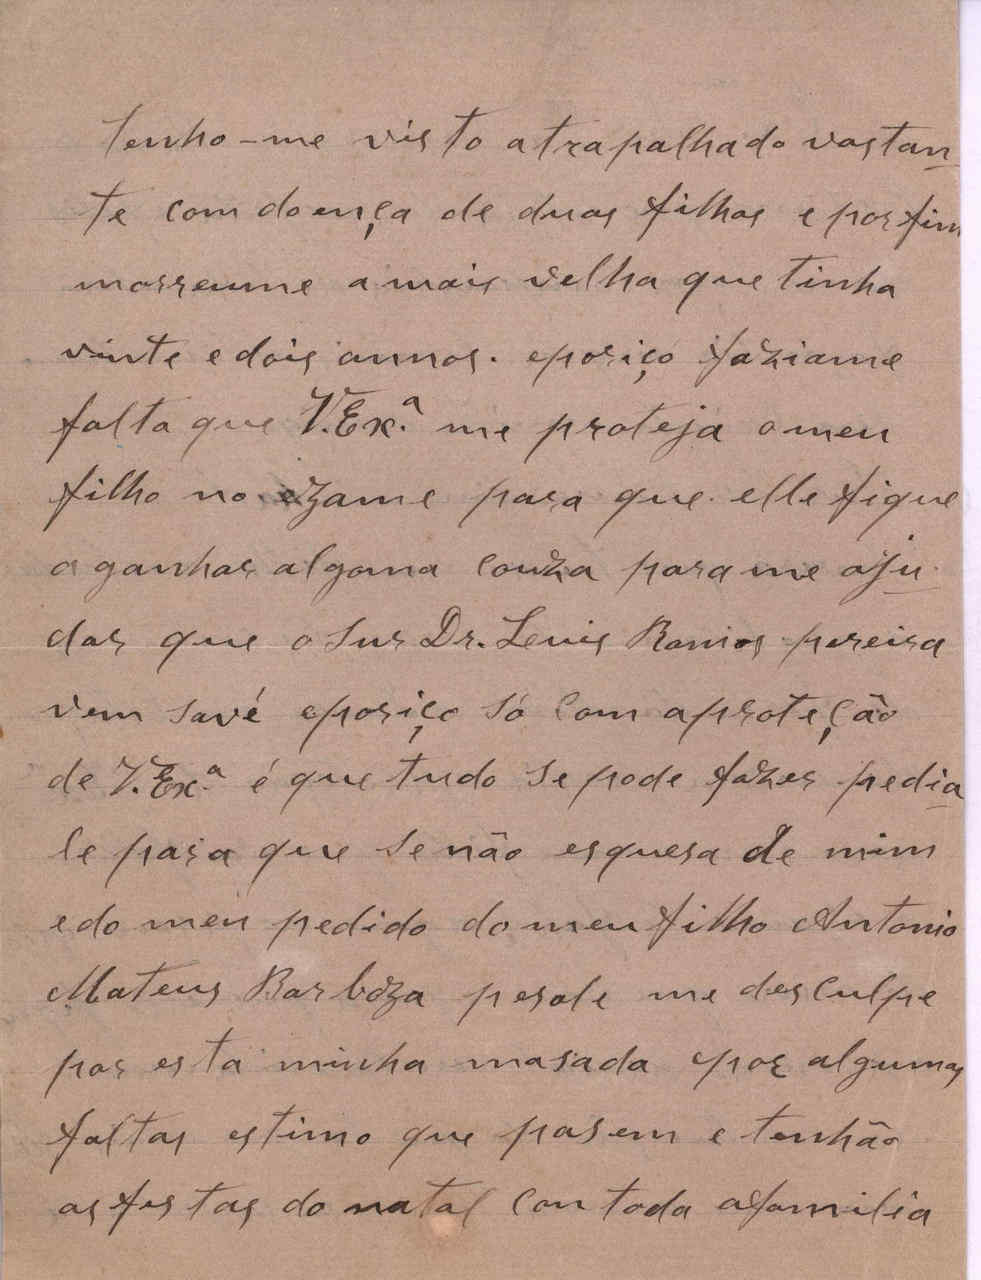 tenho-me visto atrapalhado vastan
te com doença de duas filhas e por fim
morreume a mais velha que tinha
vinte e dois annos. eporiço faziame
falta que V.Exª. me proteja o meu
filho no ezame para que elle fique
a ganhar algoma couza para me aju
dar que o Snr Dr. Leuis Ramos pereira
vem savé eporiço só com a proteção
de V.Exª. é que tudo se pode fazer pedia
le para que se não esquesa de mim
e do meu pedido do meu filho Antonio
Mateus Barboza pesole me desculpe
por esta minha masada epor algumas
faltas estimo que pasem e tenhão
as festas do natal con toda afamilia